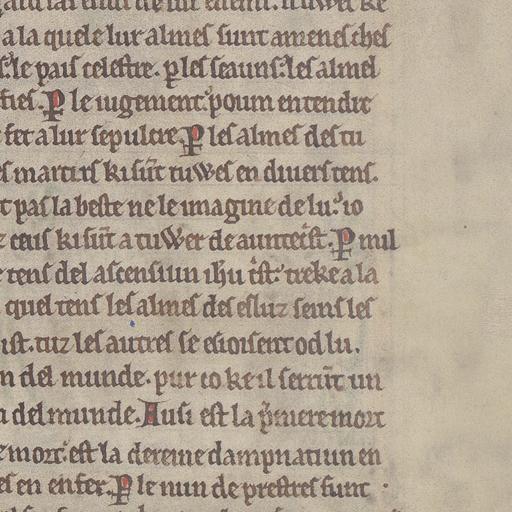 a la quele lur almes sunt amenes ches
s: le pais celestre. ꝑ les seauns: les almes
fies. P le iugement: poum entendre
fet a lur sepulcre. P les almes des tu
es martirs ki sūt tuwes en diuers tens.
t pas la beste ne le imagine de lu: io
ceus ki sūt a tuwer de auntecⁱst. P mil
tens del ascensiun ihū cⁱst: treke a la
quel tens les almes des esluz seins les
ist. tuz les autres se esioisent od lu.
n del munde. pur co ke il serrūt un
n del munde. Ausi est la pⁱmere mort
mort: est la dereine dampnatiun en
es en enfer. P le nun de prestres sunt